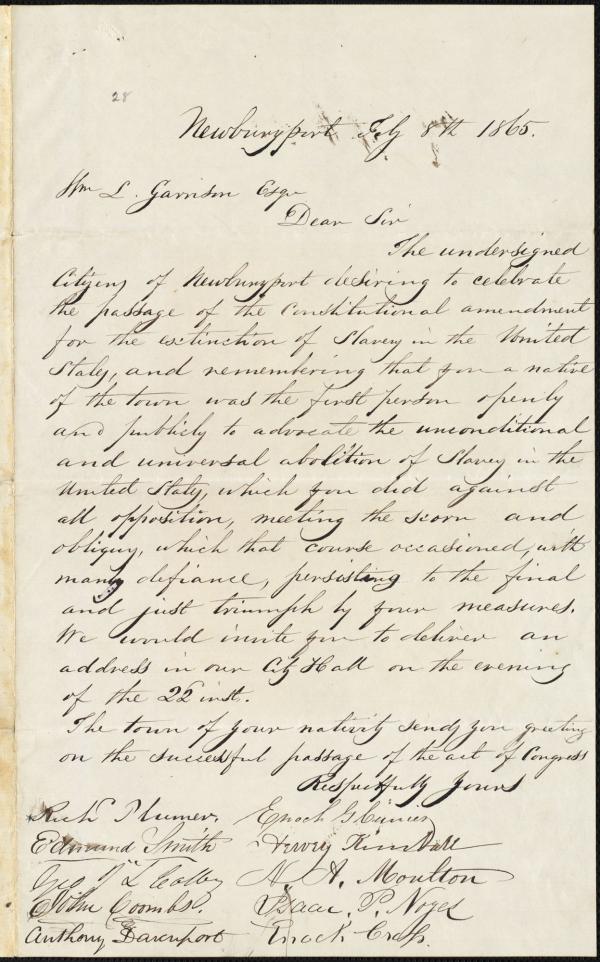 28
Newburyport Feby 8th 1865.
Wm L. Garrison Esqr
Dear Sir
The undersigned
Citizens of Newburyport desiring to celebrate
the passage of the Constitutional amendment
for the extinction of Slavery in the United
States, and remembering that you a native
of the town was the first person openly
and publicly to advocate the unconditional
and universal abolition of Slavery in the
United States, which you did against
all opposition, meeting the scorn and
obliquy, which that course occasioned, with
manly defiance, persisting to the final
and just triumph by your measures.
We would invite you to deliver an
address in our City Hall on the evening
of the 22 inst.
The town of your nativity sends you greeting
on the successful passage of the act of Congress
Respectfully Yours
Rich Plumer. Enoch G
Edmund Smith Hervey Kimball
Geo J L Colby N. A. Moulton
John Coombs. Isaac. P. Noyes
Anthony Davenport Enoch Cross.